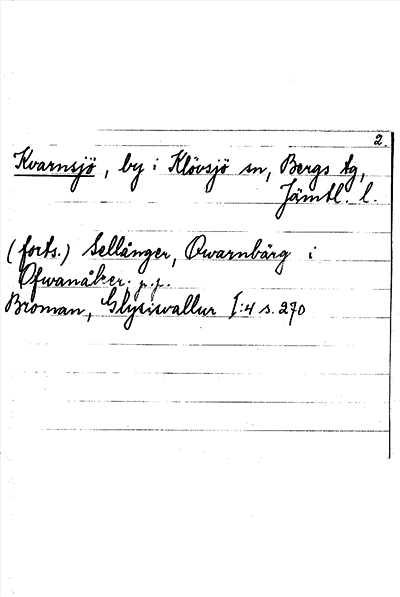 2.
Kvarnsjö, by i Klövsjö sn, Bergs tg,
Jämtl. l.
(forts.) Sellånger, Qwarnbärg i
Ofwanåker. p.p.
Broman, Glysisvallur I:4 s. 270